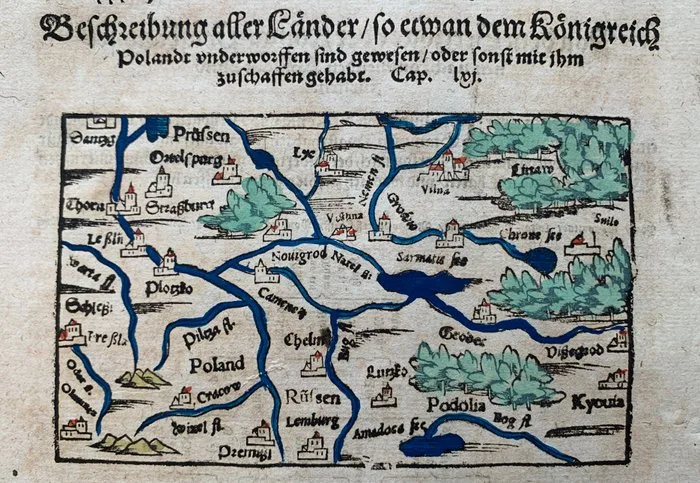 Beschreibung aller Länder/so etwan dem Königreich
Polandt vnderworffen sind gewesen/oder sonst mit ihm
zuschaffen gehabt. Cap. lxj.
Dantzg
Prüssen
Ortelsparg
Lyc
Nemen fl.
Vilna
Littaw
Thorn
Straßburg
Grodno
Smilo
Leßlin
Chrone see
Warta fl.
Plotzko
Nouigrod
Narel fl.
Sarmatis see
Schlesi
Camenen
Preßla
Pilza fl.
Chelm
Bug fl.
Geodec
Vißegrod
Poland
Oder fl.
Lutzko
Cracow
Rüssen
Podolia
Kyouia
Wixel fl.
Premißl
Lemburg
Amadoca see
Bog fl.